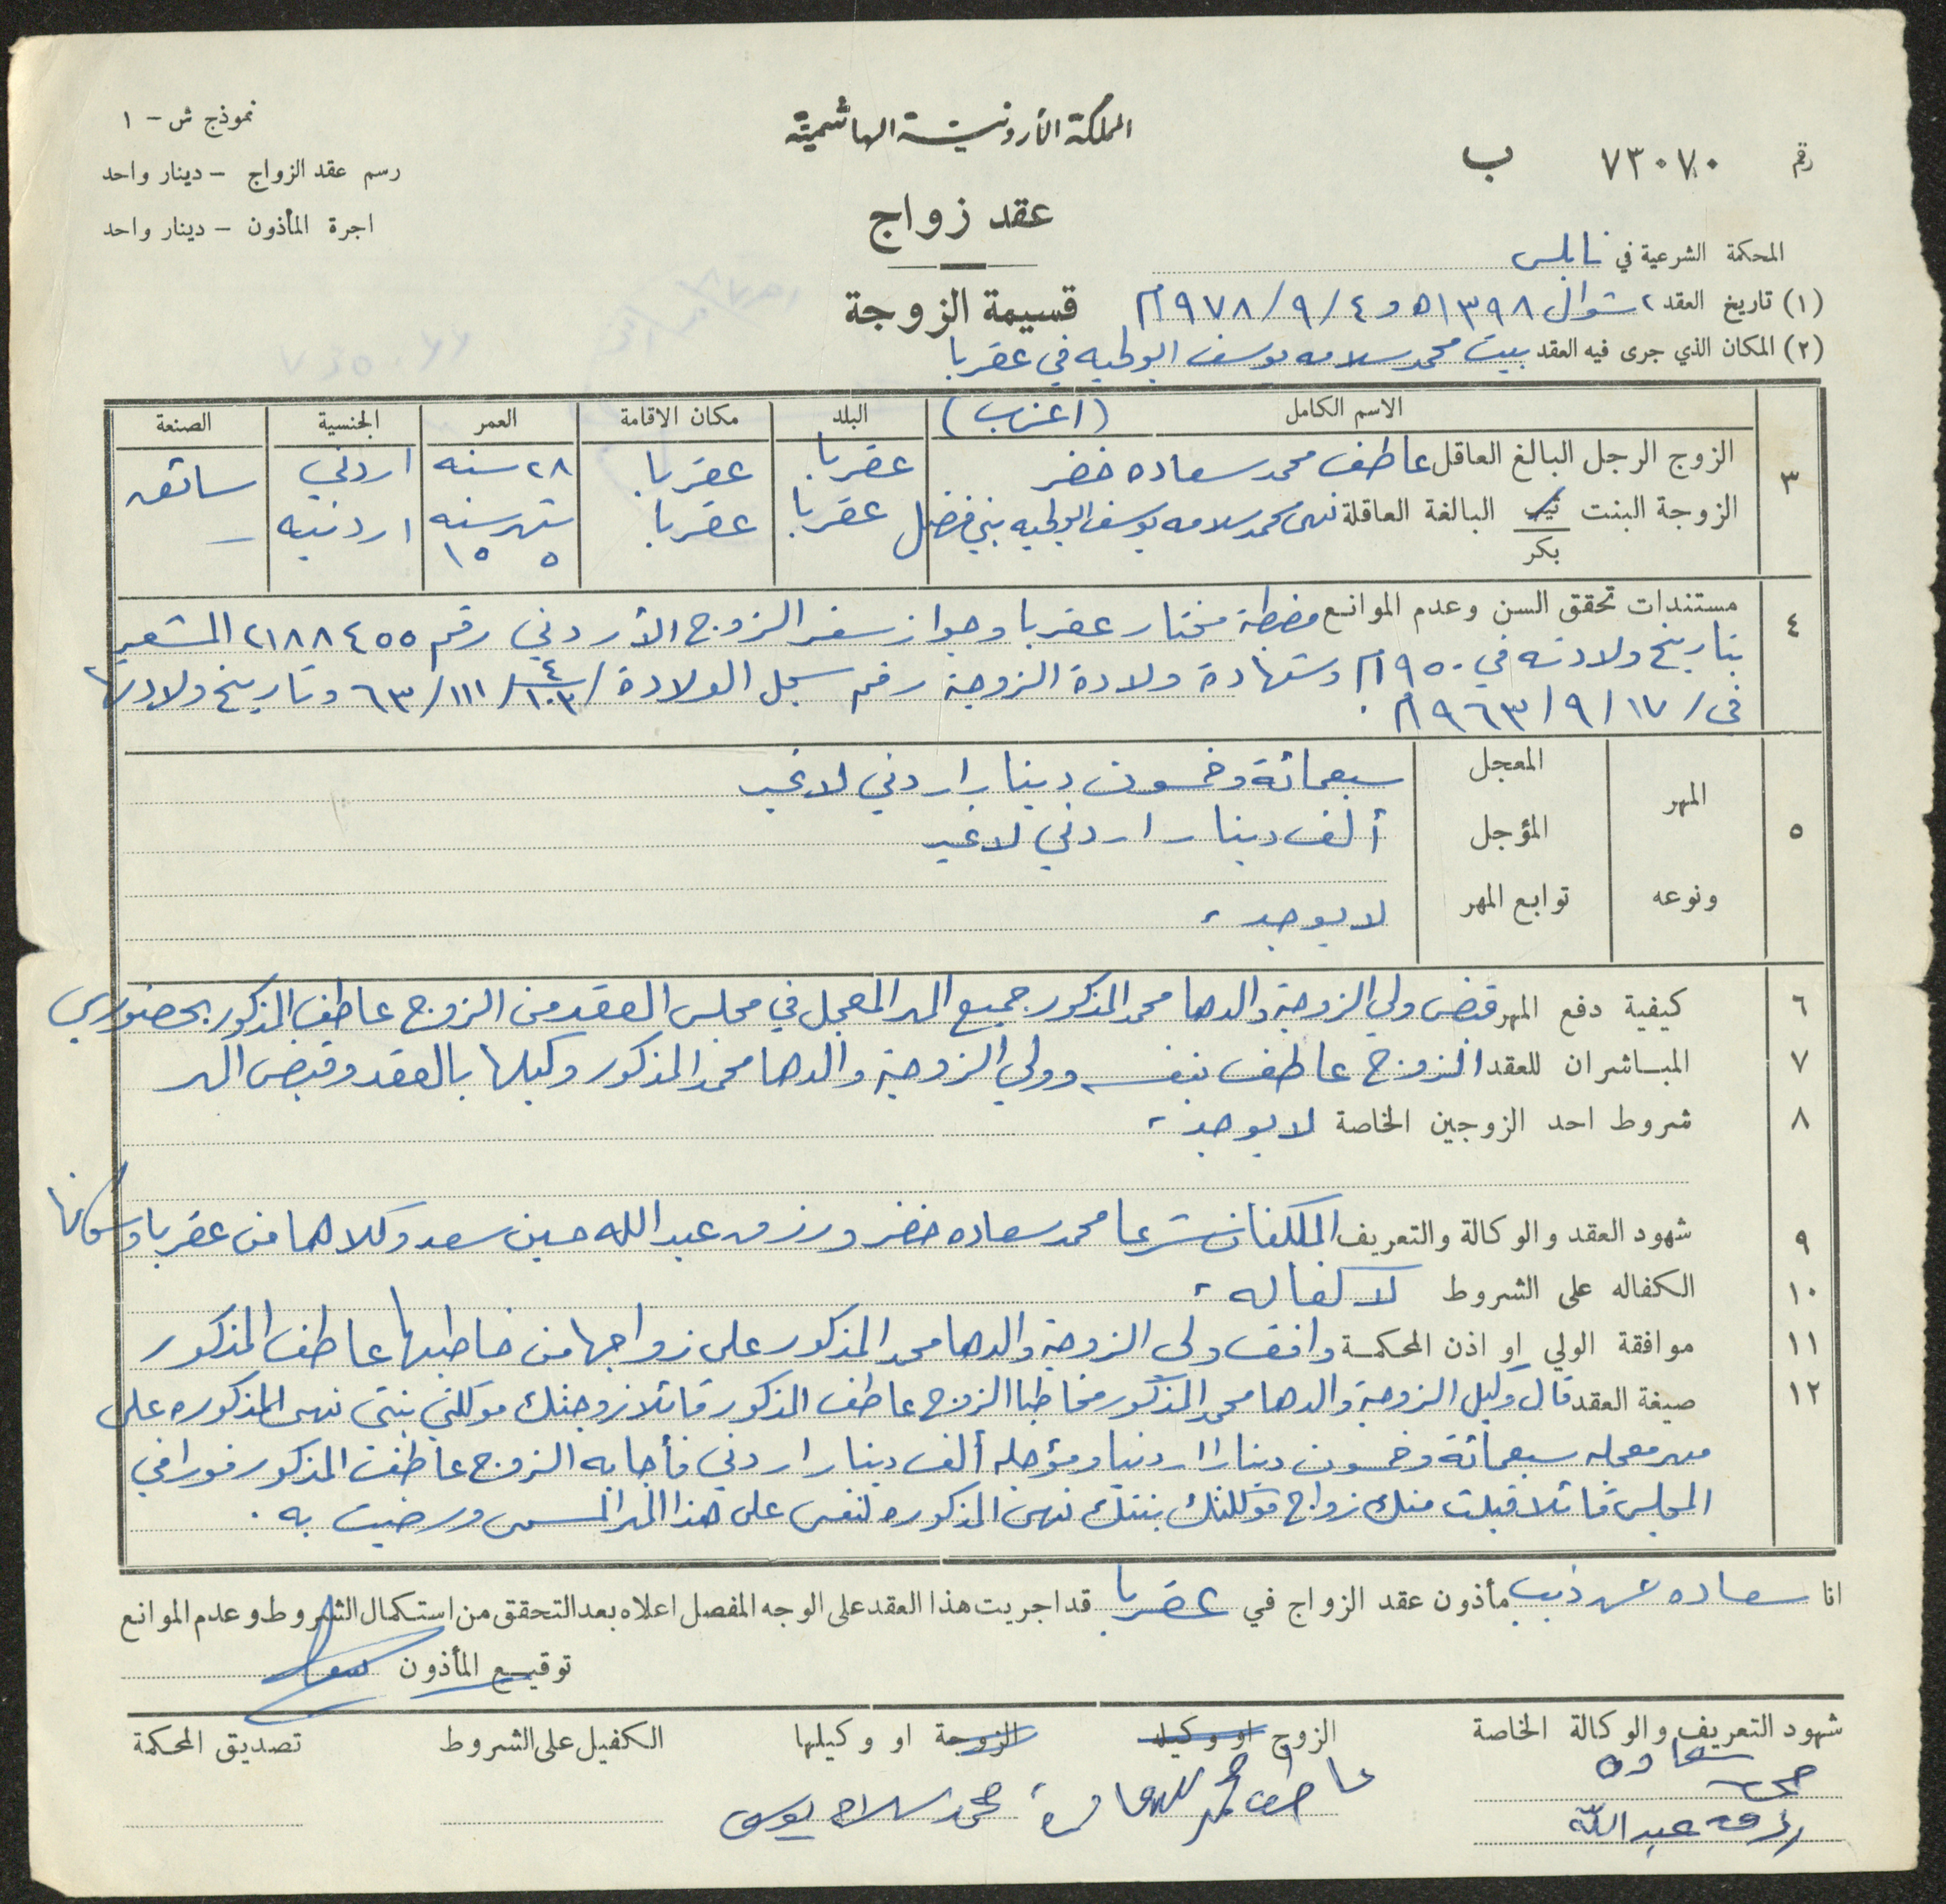 المملكة الأردنية الهاشمية
نموذج ش - ١
رسم عقد الزواج - دينار واحد
اجرة المأذون - دينار واحد
رقم ٧٣٠٧٠ ب
عقد زواج
قسيمة الزوجة
المحكمة الشرعية في نابلس
(١) تاريخ العقد ٢ شوال ١٣٩٨ه و ٤/٩/١٩٧٨م
(٢) المكان الذي جرى فيه العقد بيت محمد سلامه يوسف ابو لحيه في عقربا
الاسم الكامل (اعزب) البلد مكان الاقامة العمر الجنسية الصنعة
٣ الزوج الرجل البالغ العاقل عاطف محمد سعاده خضر عقربا عقربا ٢٨ سنه اردني سائق
الزوجة البنت ثيب بكر البالغة العاقلة نهى محمد سلامه يوسف ابو لحيه بني فضل عقربا عقربا شهر ٥ سنه ١٥ اردنيه -
٤ مستندات تحقق السن وعدم الموانع مضبطة مختار عقربا وجواز سفر الزوج الأردني رقم ٢١٨٨٤٥٥ المشعر
بتاريخ ولادته في ١٩٥٠م وشهادة ولادة الزوجة رقم سجل الولادة /٤/١٠٣/١١١/٦٣ وتاريخ ولادتها
في / ١٧/٩/١٩٦٣م.
٥ المهر ونوعه
المعجل سبعمائة وخمسون دينار اردني لا غير
المؤجل ألف دينار اردني لا غير
توابع المهر لا يوجد،
٦ كيفية دفع المهر قبض ولي الزوجة والدها محمد المذكور جميع المهر المعجل في مجلس العقد من الزوج عاطف المذكور بحضوري
٧ المباشران للعقد الزوج عاطف بنفسه وولي الزوجة والدها محمد المذكور وكيلها بالعقد وقبض المهر
٨ شروط احد الزوجين الخاصة لا يوجد،
٩ شهود العقد والوكالة والتعريف المكلفان شرعا محمد سعاده خضر ورزق عبد الله حسين سعد وكلاهما من عقربا وسكانها
١٠ الكفاله على الشروط لا كفاله،
١١ موافقة الولي او اذن المحكمة وافق ولي الزوجة والدها محمد المذكور على زواجها من خاطبها عاطف المذكور
١٢ صيغة العقد قال وكيل الزوجة والدها محمد المذكور مخاطبا الزوج عاطف المذكور قائلا زوجتك موكلتي بنتي نهى المذكوره على
مهر معجله سبعمائة وخمسون دينارا اردنيا ومؤجله ألف دينار اردني فأجابه الزوج عاطف المذكور فورا في
المجلس قائلا قبلت منك زواج موكلتك بنتك نهى المذكوره لنفسي على هذا المهر المسمى ورضيت به.
انا سعاده ذيب مأذون عقد الزواج في عقربا قد اجريت هذا العقد على الوجه المفصل اعلاه بعد التحقق من استكمال الشروط وعدم الموانع
توقيع المأذون
شهود التعريف والوكالة الخاصة الزوج او وكيله الزوجة او وكيلها الكفيل على الشروط تصديق المحكمة
محمد سعاده عاطف محمد سعاده محمد سلامه يوسف
رزق عبد الله